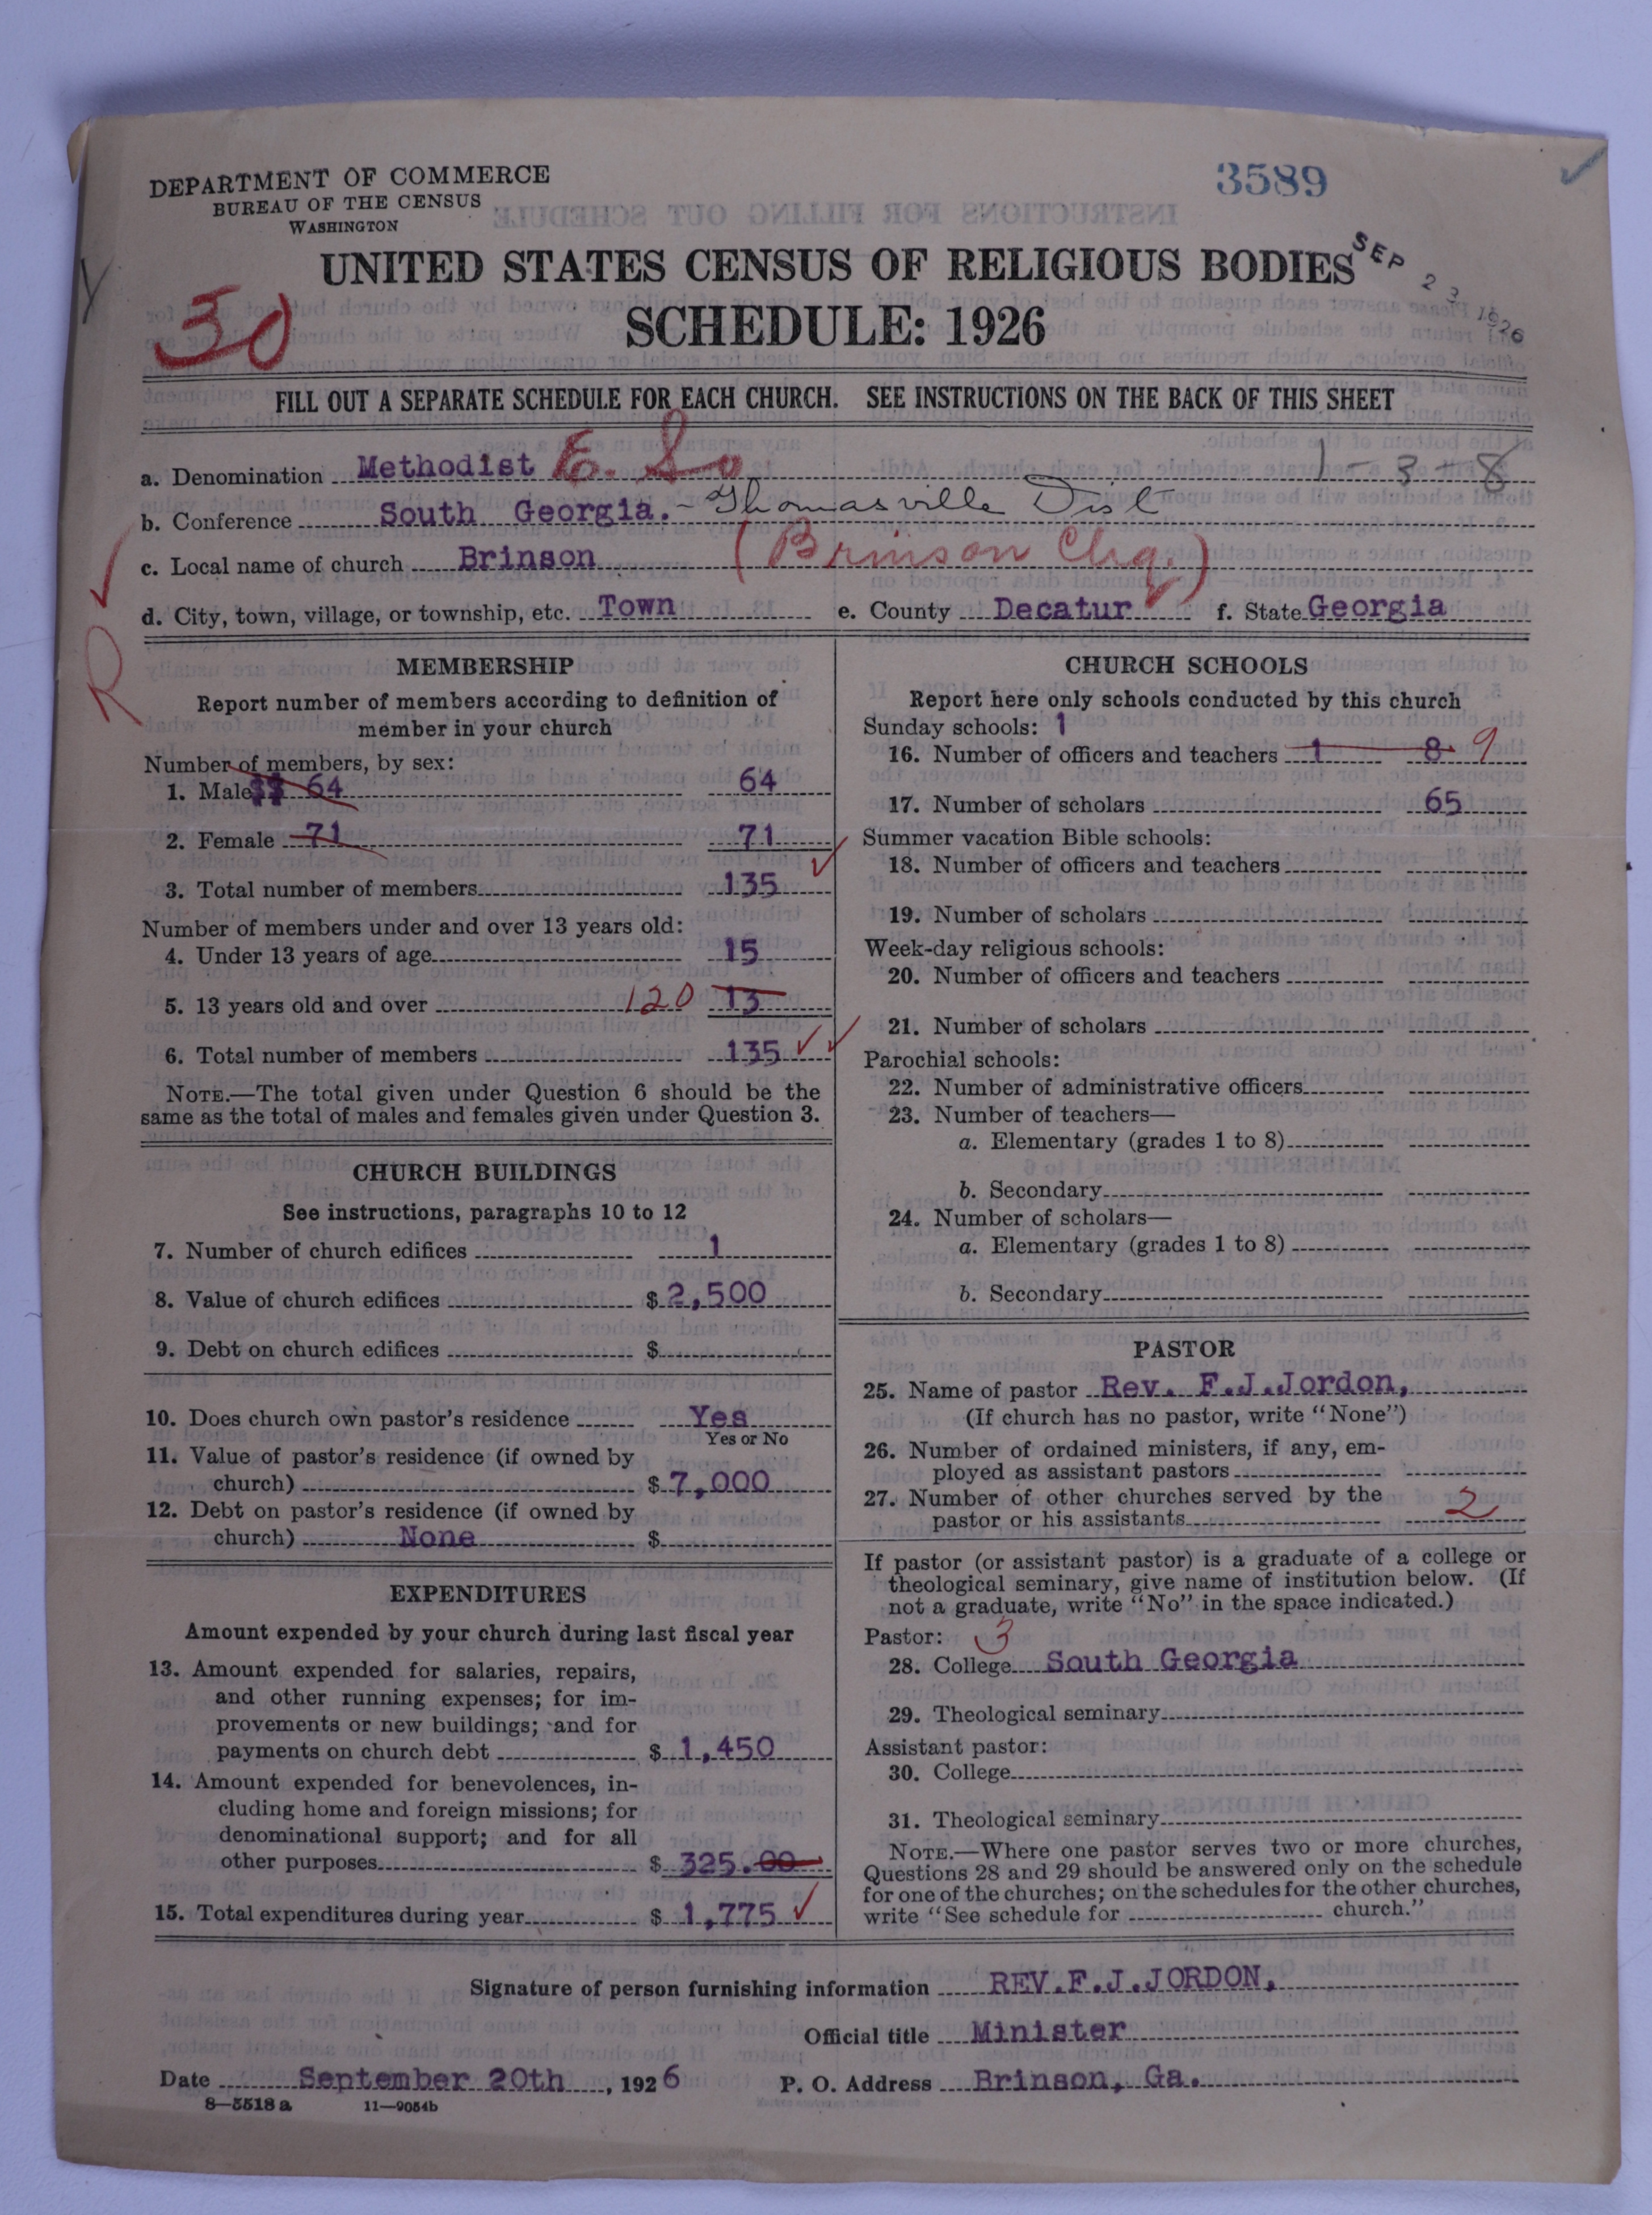 DEPARTMENT OF COMMERCE
BUREAU OF THE CENSUS
WASHINGTON
3589
UNITED STATES CENSUS OF RELIGIOUS BODIES
SEP 23 1926
30
SCHEDULE: 1926
FILL OUT A SEPARATE SCHEDULE FOR EACH CHURCH. SEE INSTRUCTIONS ON THE BACK OF THIS SHEET
a. Denomination Methodist E. So 1-3-8
b. Conference South Georgia. - Thomasville Dist
c. Local name of church Brinson (Brinson Chg.)
d. City, town, village, or township, etc. Town e. County Decatur f. State Georgia
R
MEMBERSHIP
Report number of members according to definition of
member in your church
Number of members, by sex:
1. Male 64 64
2. Female 71 71
3. Total number of members 135
Number of members under and over 13 years old:
4. Under 13 years of age 15
5. 13 years old and over 120 13
6. Total number of members 135
NOTE.—The total given under Question 6 should be the
same as the total of males and females given under Question 3.
CHURCH BUILDINGS
See instructions, paragraphs 10 to 12
7. Number of church edifices 1
8. Value of church edifices $ 2,500
9. Debt on church edifices $
10. Does church own pastor's residence Yes
Yes or No
11. Value of pastor's residence (if owned by
church) $ 7,000
12. Debt on pastor's residence (if owned by
church) None $
EXPENDITURES
Amount expended by your church during last fiscal year
13. Amount expended for salaries, repairs,
and other running expenses; for im-
provements or new buildings; and for
payments on church debt $ 1,450
14. Amount expended for benevolences, in-
cluding home and foreign missions; for
denominational support; and for all
other purposes $ 325.00
15. Total expenditures during year $ 1,775
CHURCH SCHOOLS
Report here only schools conducted by this church
Sunday schools: 1
16. Number of officers and teachers 1 8 9
17. Number of scholars 65
Summer vacation Bible schools:
18. Number of officers and teachers
19. Number of scholars
Week-day religious schools:
20. Number of officers and teachers
21. Number of scholars
Parochial schools:
22. Number of administrative officers
23. Number of teachers—
a. Elementary (grades 1 to 8)
b. Secondary
24. Number of scholars—
a. Elementary (grades 1 to 8)
b. Secondary
PASTOR
25. Name of pastor Rev. F.J.Jordon,
(If church has no pastor, write "None")
26. Number of ordained ministers, if any, em-
ployed as assistant pastors
27. Number of other churches served by the
pastor or his assistants 2
If pastor (or assistant pastor) is a graduate of a college or
theological seminary, give name of institution below. (If
not a graduate, write "No" in the space indicated.)
Pastor: 3
28. College South Georgia
29. Theological seminary
Assistant pastor:
30. College
31. Theological seminary
NOTE.—Where one pastor serves two or more churches,
Questions 28 and 29 should be answered only on the schedule
for one of the churches; on the schedules for the other churches,
write "See schedule for church."
Signature of person furnishing information REV.F.J.JORDON,
Official title Minister
Date September 20th, 1926 P. O. Address Brinson, Ga.
8—5518 a 11—9054b